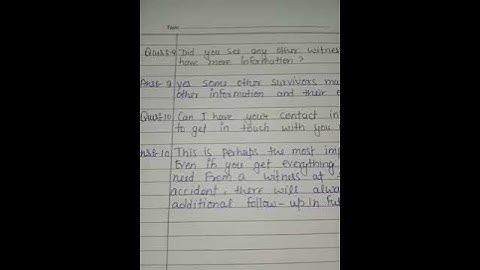 Ques:-9 Did you see any other witnes
have more information ?
Ans:- 9 yes some other survivors ma
other information and their
Ques:-10 Can I have your contact in
to get in touch with you
ns:- 10 This is perhaps the most imp
Even if you get everything
need from a witness at
accident, there will alwa
additional follow-up in fut